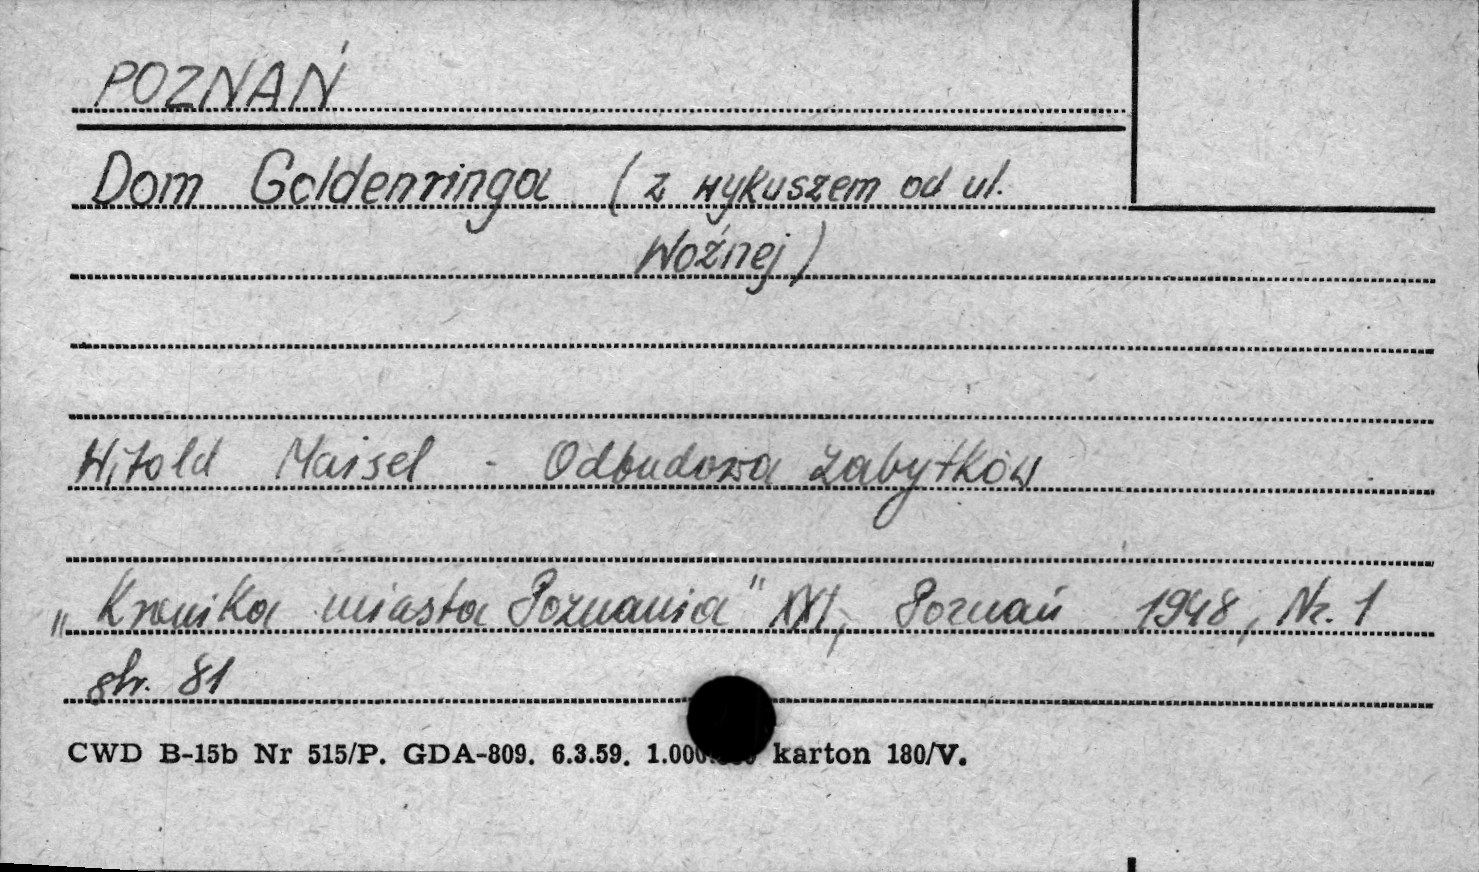 POZNAŃ
Dom Goldenringa (z wykuszem od ul.
Woźnej)
Witold Maisel - Odbudowa zabytków
„Kronika miasta Poznania" XXI, Poznań 1948, Nr. 1
str. 81
CWD B-15b Nr 515/P. GDA-809. 6.3.59. karton 180/V.